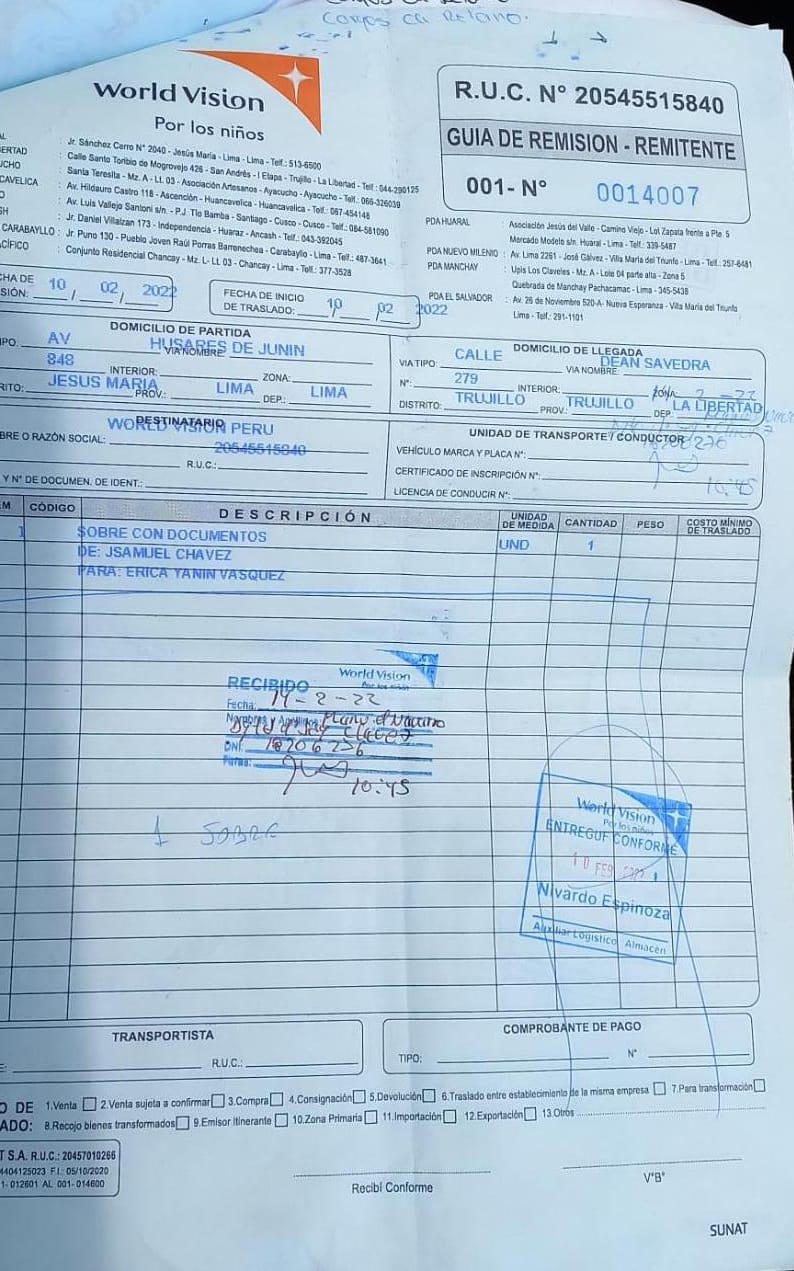 World Vision
Por los niños
Jr. Sánchez Cerro N° 2040 - Jesús María - Lima - Lima - Telf.: 513-6500
ERTAD : Calle Santo Toribio de Mogrovejo 426 - San Andrés - I Etapa - Trujillo - La Libertad - Telf.: 044-290125
UCHO : Santa Teresita - Mz. A - Lt. 03 - Asociación Artesanos - Ayacucho - Ayacucho - Telf.: 066-326039
CAVELICA : Av. Hildauro Castro 118 - Ascensión - Huancavelica - Huancavelica - Telf.: 067-454148
O : Av. Luis Vallejo Santoni s/n - P.J. Tío Bamba - Santiago - Cusco - Cusco - Telf.: 084-581090
SH : Jr. Daniel Villaizan 173 - Independencia - Huaraz - Ancash - Telf.: 043-392045
CARABAYLLO : Jr. Puno 130 - Pueblo Joven Raúl Porras Barrenechea - Carabayllo - Lima - Telf.: 487-3641
CÍFICO : Conjunto Residencial Chancay - Mz. L - Lt. 03 - Chancay - Lima - Telf.: 377-3528
R.U.C. N° 20545515840
GUIA DE REMISION - REMITENTE
001- N° 0014007
PDA HUARAL : Asociación Jesús del Valle - Camino Viejo - Lot Zapata frente a Pte. 5
Mercado Modelo s/n. Huaral - Lima - Telf.: 339-5487
PDA NUEVO MILENIO : Av. Lima 2261 - José Gálvez - Villa María del Triunfo - Lima - Telf.: 257-6481
PDA MANCHAY : Upis Los Claveles - Mz. A - Lote 04 parte alta - Zona 5
Quebrada de Manchay Pachacamac - Lima - 345-5438
PDA EL SALVADOR : Av. 26 de Noviembre 520-A- Nueva Esperanza - Villa María del Triunfo
Lima - Telf.: 291-1101
CHA DE
SIÓN: 10 / 02 / 2022
FECHA DE INICIO
DE TRASLADO: 10 / 02 2022
DOMICILIO DE PARTIDA
IPO: AV VIA NOMBRE: HUSARES DE JUNIN
848 INTERIOR: ZONA:
RITO: JESUS MARIA PROV.: LIMA DEP.: LIMA
DOMICILIO DE LLEGADA
VIA TIPO: CALLE VIA NOMBRE: DEAN SAVEDRA
N°: 279 INTERIOR:
DISTRITO: TRUJILLO PROV.: TRUJILLO DEP.: LA LIBERTAD
DESTINATARIO
BRE O RAZÓN SOCIAL: WORLD VISION PERU
20545515840
R.U.C.:
Y N° DE DOCUMEN. DE IDENT.:
UNIDAD DE TRANSPORTE / CONDUCTOR
18206276
VEHÍCULO MARCA Y PLACA N°:
CERTIFICADO DE INSCRIPCIÓN N°:
10:45
LICENCIA DE CONDUCIR N°:
EM CÓDIGO DESCRIPCIÓN UNIDAD DE MEDIDA CANTIDAD PESO COSTO MÍNIMO DE TRASLADO
1 SOBRE CON DOCUMENTOS UND 1
DE: JSAMUEL CHAVEZ
PARA: ERICA YANIN VASQUEZ
World Vision
Por los niños
RECIBIDO
Fecha: 14-2-22
DNI: 18206276
Firma:
10:45
1 SOBRE
World Vision
Por los niños
ENTREGUE CONFORME
10 FEB 2022
Nivardo Espinoza
Auxiliar Logístico Almacén
TRANSPORTISTA
E: R.U.C.:
COMPROBANTE DE PAGO
TIPO: N°
O DE 1.Venta 2.Venta sujeta a confirmar 3.Compra 4.Consignación 5.Devolución 6.Traslado entre establecimiento de la misma empresa 7.Para transformación
ADO: 8.Recojo bienes transformados 9.Emisor Itinerante 10.Zona Primaria 11.Importación 12.Exportación 13.Otros
T S.A. R.U.C.: 20457010266
4404125023 F.I.: 05/10/2020
1- 012601 AL 001- 014600
Recibí Conforme
V°B°
SUNAT